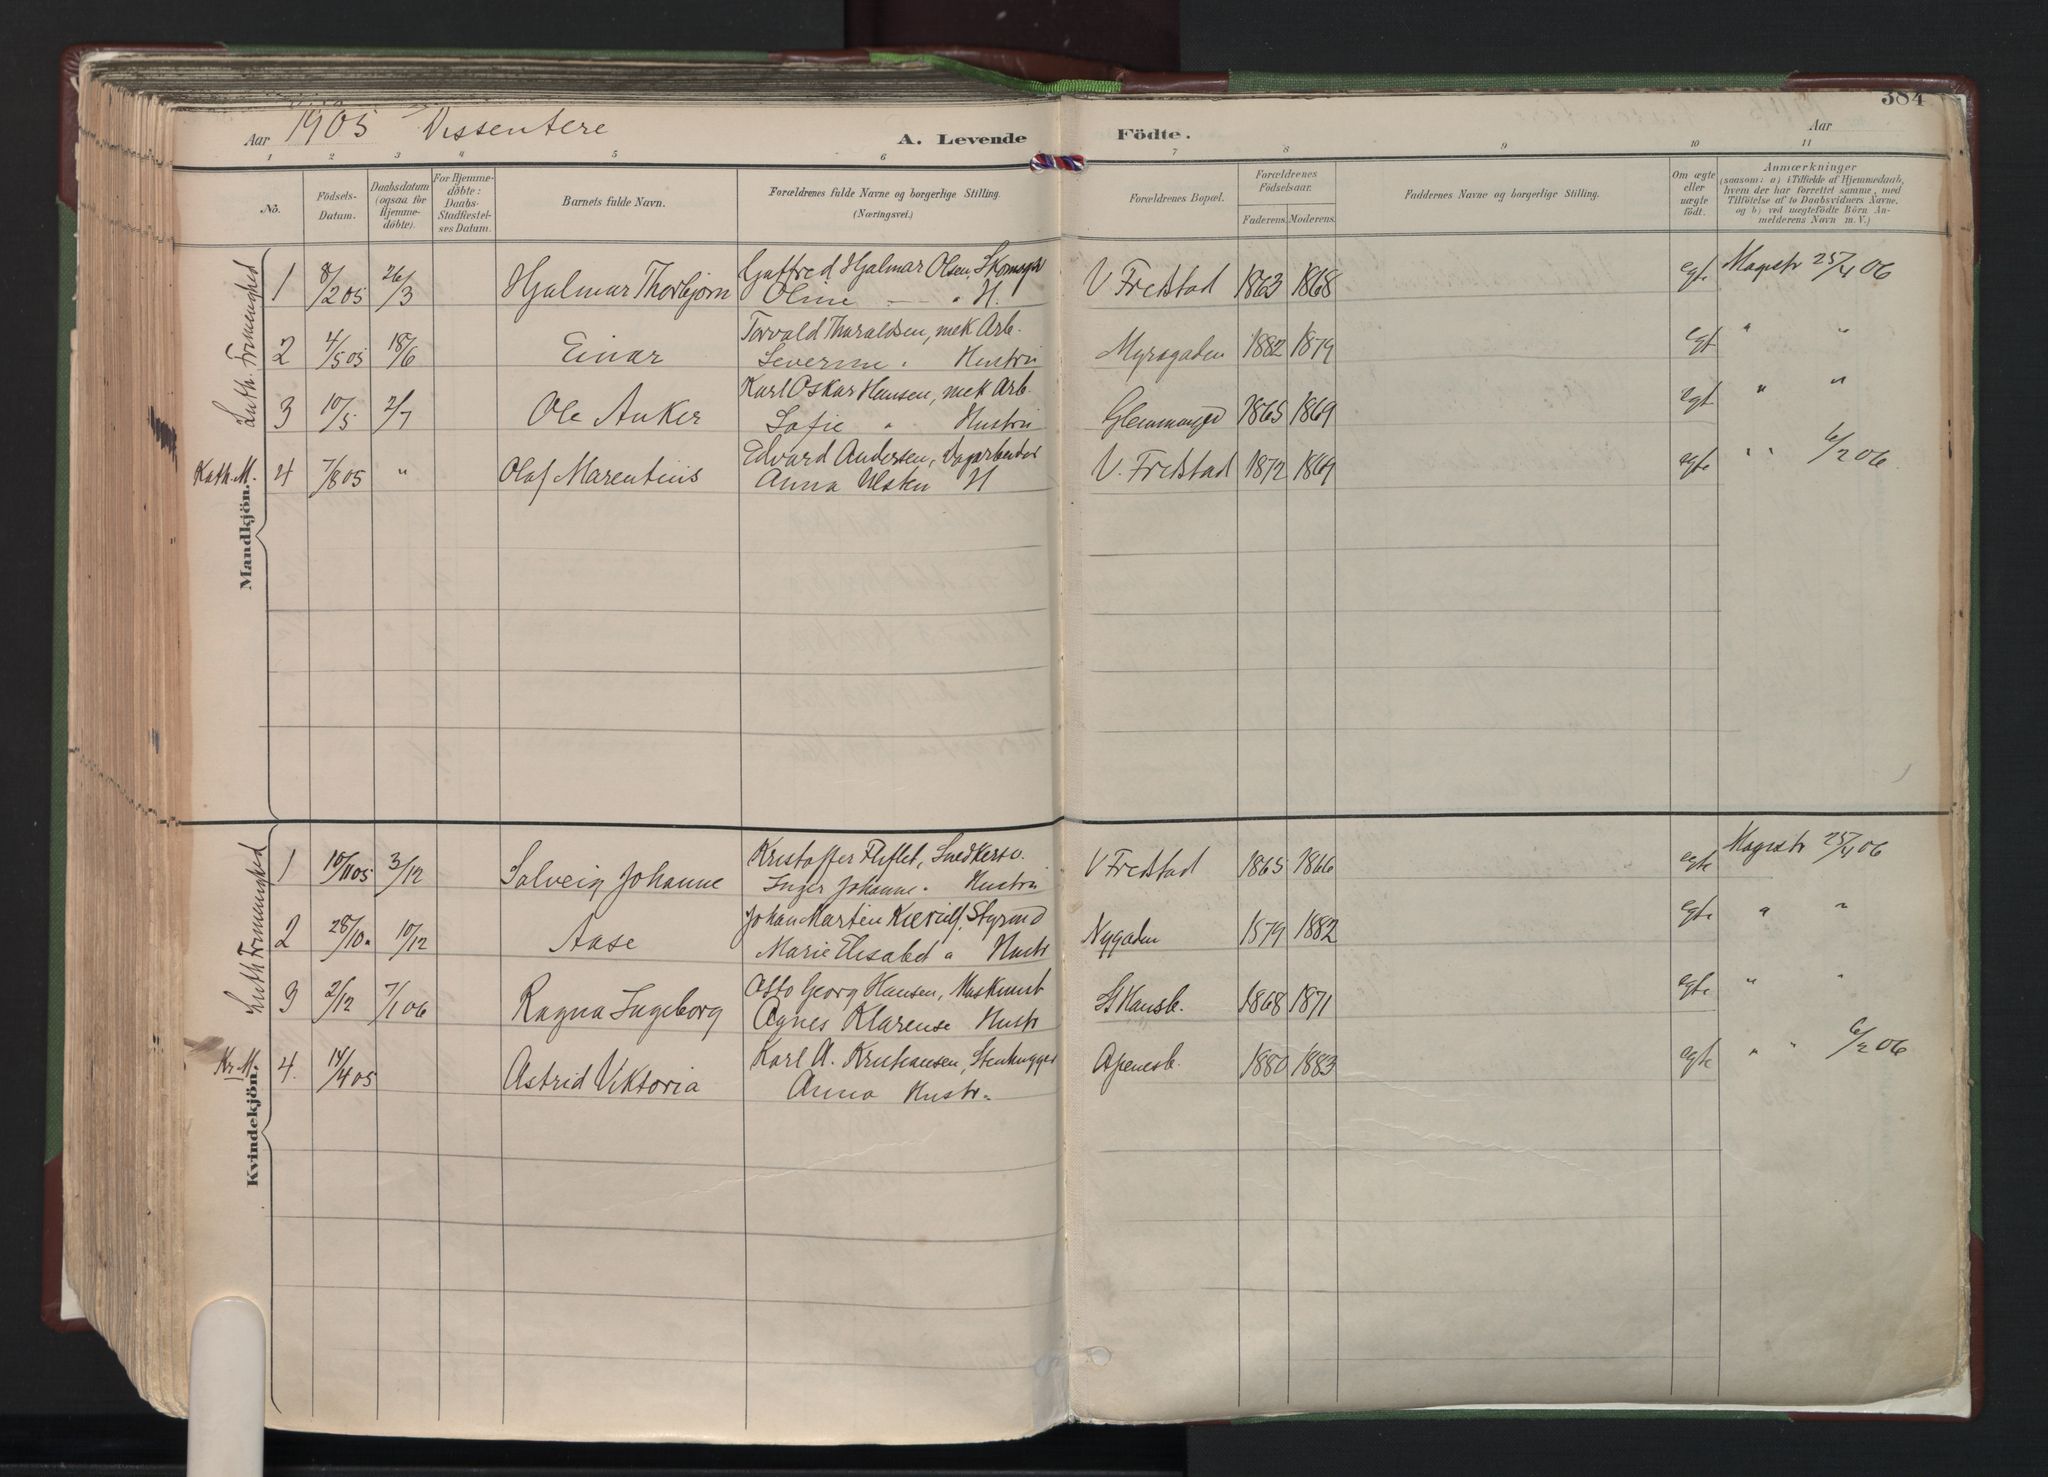 384
Aar 1905 Dissentere A. Levende Födte. Aar
1 2 3 4 5 6 7 8 9 10 11
No.
Födsels-Datum.
Daabsdatum (ogsaa for Hjemmedöbte).
For Hjemmedöbte: Daabs-Stadfæstelses Datum.
Barnets fulde Navn.
Forældrenes fulde Navne og borgerlige Stilling. (Næringsvei.)
Forældrenes Bopæl.
Forældrenes Födselsaar.
Faderens. Moderens.
Faddernes Navne og borgerlige Stilling.
Om ægte eller uægte födt.
Anmærkninger
(saasom: a) i Tilfælde af Hjemmedaab,
hvem der har forrettet samme, med
Tilföielse af to Daabsvidners Navne,
og b) ved uægtefödte Börn Anmelderens Navn m. V.)
Mandkjön.
Luth. Fremenighed
1 8/2 05 26/3 Hjalmar Thorbjørn Gotfred Hjalmar Olsen, Skomager V Fredstad 1863 1868 egte Magistr 25/4 06
Oline — " H.
2 4/5 05 18/6 Einar Torvald Tharaldsen, mek Arb. Myragaden 1882 1879 egt " "
Severine " Hustru
3 10/5 2/7 Ole Anker Karl Oskar Hansen, mek Arb. 1865 1869 egt " "
Sofie " Hustru
Kath. M. 4 7/8 05 " Olaf Marentius Edvard Andersen, Dagarbeider V. Fredstad 1872 1869 egte " " 6/2 06
Anna H
Kvindekjön.
Luth Fremenighed
1 10/11 05 3/12 Solveig Johanne Kristoffer Fliflet, Snedkersv. V Fredstad 1865 1866 egte Magistr 25/4 06
Inger Johanne " Hustru
2 28/10 " 10/12 Aase Johan Martin Styrmd Nygaden 1879 1882 egte " "
Marie Elisabet " Hustr
3 2/12 7/1 06 Ragna Ingeborg Otto Georg Hansen, Maskinist St Hansb. 1868 1871 egte " "
Agnes Klarense Hustr
Kr. M. 4. 14/4 05 Astrid Viktoria Karl A. Kristiansen, Stenhugger Apenesb. 1880 1883 egte " " 6/2 06
Anna Hustr.